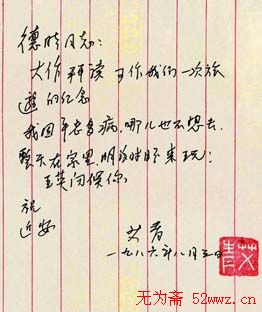 德明同志:
大作拜读 可作我们一次旅
游的纪念
我因年老多病,哪儿也不想去.
整天在家里,明后时时来玩!
问候你.
祝
近安
艾青
一九八六年八月五日
艾青
无为斋 52wwz.cn